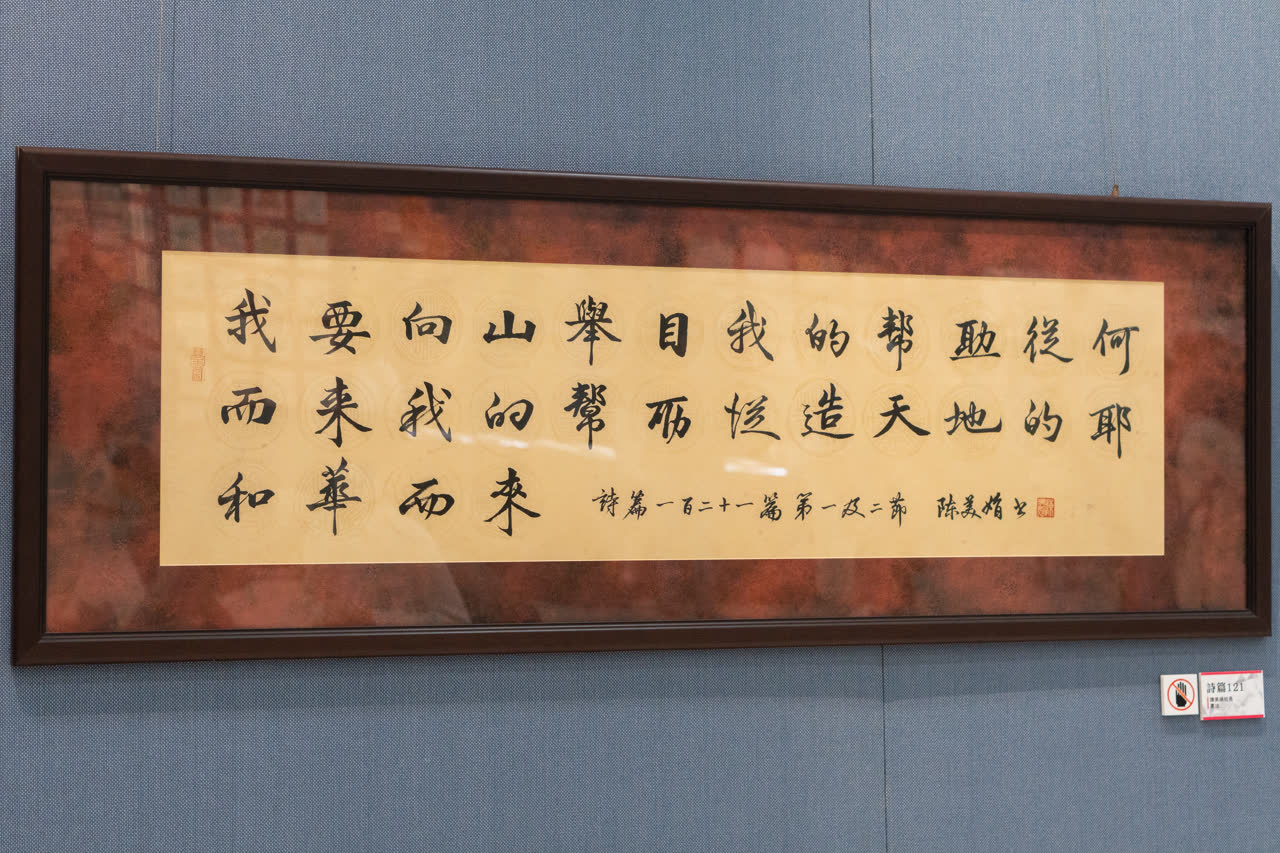 我要向山舉目我的帮助從何
而来我的幫助從造天地的耶
和華而來
詩篇一百二十一篇第一及二節 陈美娟书
詩篇121
書法